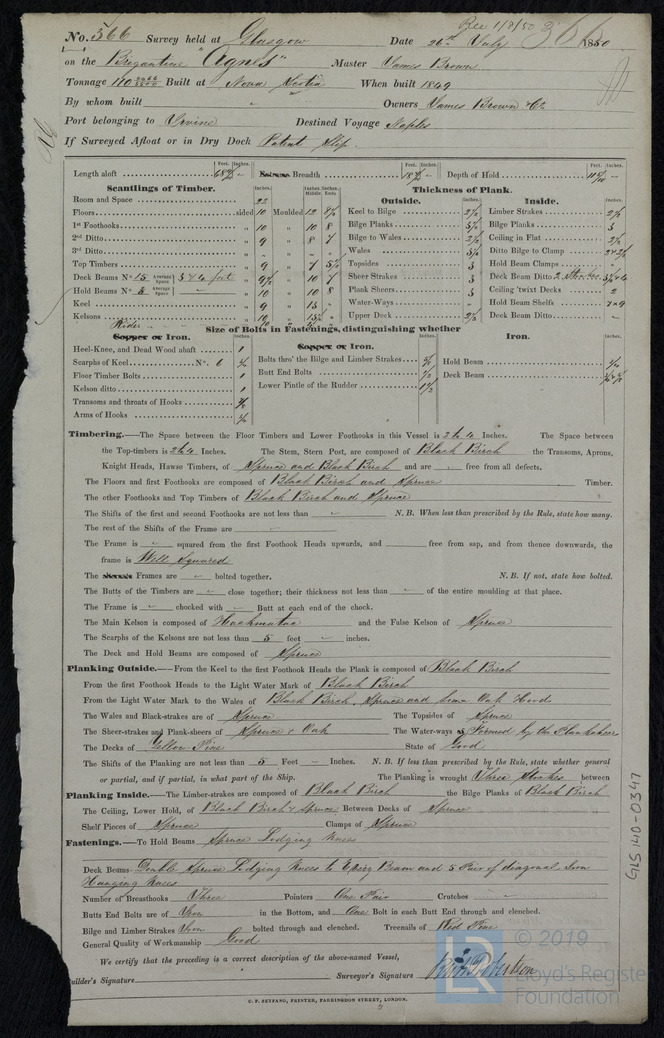 Rec 1/8/50
No. 566 Survey held at Glasgow Date 26th July 1850
on the Brigantine "Agnes" Master James Brown
Tonnage 110 Built at Nova Scotia When built 1849
By whom built Owners James Brown & Co
Port belonging to Irvine Destined Voyage Naples
If Surveyed Afloat or in Dry Dock Patent Slip.
Feet. Inches. Feet. Inches. Feet. Inches.
Length aloft Extreme Breadth Depth of Hold
Scantlings of Timber. Thickness of Plank.
Inches. Inches. Middle Inches. Ends Outside. Inches. Inside. Inches.
Room and Space 22 Keel to Bilge 2½ Limber Strakes 2½
Floors sided 10 Moulded 12 Bilge Planks 3½ Bilge Planks 3
1st Foothooks " 10 " 10 8 Bilge to Wales 2½ Ceiling in Flat 2½
2nd Ditto " 9 " 8 7 Wales 3½ Ditto Bilge to Clamp
3rd Ditto " " Topsides 3 Hold Beam Clamps
Top Timbers " 9 " 7 Sheer Strakes 3 Deck Beam Ditto 2 Strakes
Deck Beams No. 15 Average Space 3 & 4 feet " " 10 7 Plank Sheers 3 Ceiling 'twixt Decks 2
Hold Beams No. 3 Average Space " 10 " 10 Water-Ways Hold Beam Shelfs 7 x 9
Keel " 9 " 13 Upper Deck 2½ Deck Beam Ditto
Kelsons " 10 "
Rider
Size of Bolts in Fastenings, distinguishing whether
Copper or Iron. Copper or Iron. Iron.
Heel-Knee, and Dead Wood abaft 1 Bolts thro' the Bilge and Limber Strakes Hold Beam
Scarphs of Keel No. 6 Butt End Bolts Deck Beam
Floor Timber Bolts 1 Lower Pintle of the Rudder
Kelson ditto 1
Transoms and throats of Hooks
Arms of Hooks
Timbering.—The Space between the Floor Timbers and Lower Foothooks in this Vessel is 2 to 4 Inches. The Space between
the Top-timbers is 2 to 4 Inches. The Stem, Stern Post, are composed of Black Birch the Transoms, Aprons,
Knight Heads, Hawse Timbers, of Spruce and Black Birch and are free from all defects.
The Floors and first Foothooks are composed of Black Birch and Spruce Timber.
The other Foothooks and Top Timbers of Black Birch and Spruce
The Shifts of the first and second Foothooks are not less than N.B. When less than prescribed by the Rule, state how many.
The rest of the Shifts of the Frame are
The Frame is squared from the first Foothook Heads upwards, and free from sap, and from thence downwards, the
frame is Well Squared
The Frames are bolted together. N.B. If not, state how bolted.
The Butts of the Timbers are close together; their thickness not less than of the entire moulding at that place.
The Frame is chocked with Butt at each end of the chock.
The Main Kelson is composed of Hackmatac and the False Kelson of Spruce
The Scarphs of the Kelsons are not less than 5 feet inches.
The Deck and Hold Beams are composed of Spruce
Planking Outside.—From the Keel to the first Foothook Heads the Plank is composed of Black Birch
From the first Foothook Heads to the Light Water Mark of Black Birch
From the Light Water Mark to the Wales of Black Birch, Spruce and some Oak Hood
The Wales and Black-strakes are of Spruce The Topsides of Spruce
The Sheer-strakes and Plank-sheers of Spruce & Oak The Water-ways Formed by the Plansheer
The Decks of Yellow Pine State of Good
The Shifts of the Planking are not less than 5 Feet — Inches. N.B. If less than prescribed by the Rule, state whether general
or partial, and if partial, in what part of the Ship. The Planking is wrought Three Strakes between
Planking Inside.—The Limber-strakes are composed of Black Birch the Bilge Planks of Black Birch
The Ceiling, Lower Hold, of Black Birch & Spruce Between Decks of Spruce
Shelf Pieces of Spruce Clamps of Spruce
Fastenings.—To Hold Beams Spruce Lodging Knees
Deck Beams Double Spruce Lodging Knees to Every Beam and 5 Pair of diagonal Iron
Hanging Knees
Number of Breasthooks Three Pointers One Pair Crutches
Butts End Bolts are of Iron in the Bottom, and One Bolt in each Butt End through and clenched.
Bilge and Limber Strakes Iron bolted through and clenched. Treenails of Red Pine
General Quality of Workmanship Good
We certify that the preceding is a correct description of the above-named Vessel,
uilder's Signature Surveyor's Signature
C. F. SEYFANG, PRINTER, FARRINGDON STREET, LONDON.
2
GLS 140-0347
LR © 2019
Lloyd's Register
Foundation